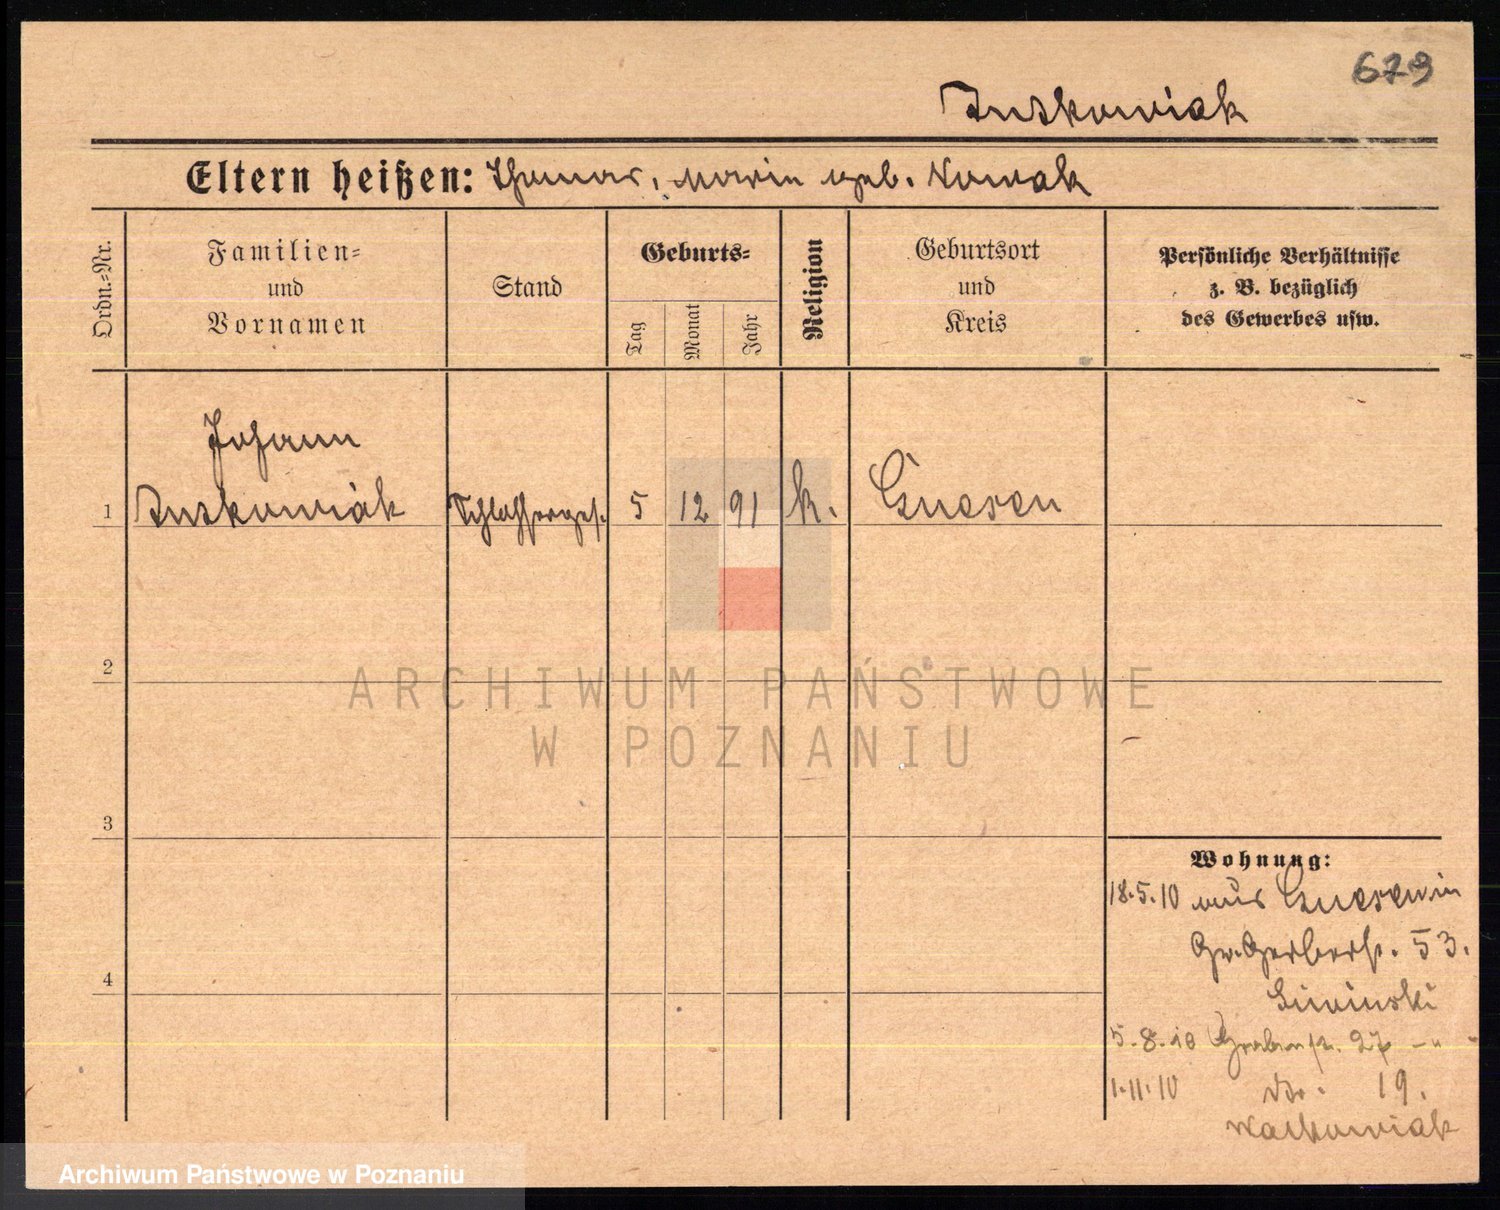 679
Juskowiak
Eltern heißen: Thomas, Marie geb. Nowak
Ordn.-Nr.
Familien-
und
Vornamen
Stand
Geburts-
Tag
Monat
Jahr
Religion
Geburtsort
und
Kreis
Persönliche Verhältnisse
z. B. bezüglich
des Gewerbes usw.
Johann
1 Juskowiak Schlosserges. 5 12 91 k. Gnesen
2
3
4
ARCHIWUM PAŃSTWOWE
W POZNANIU
Wohnung:
18.5.10 aus Gnesen in
Gr. Gerberst. 53.
5.8.10 Grabenst. 27 -"-
1.11.10 do. 19.
Archiwum Państwowe w Poznaniu